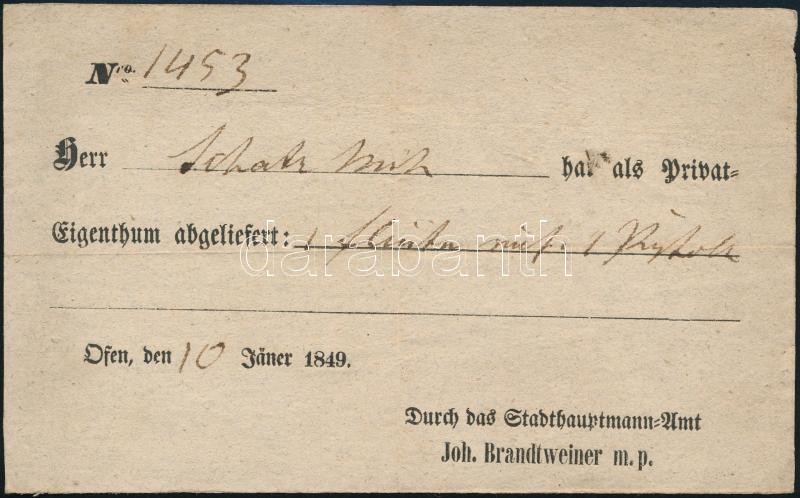 Nro. 1453
Herr Schatz Mich hat als Privat=
Eigenthum abgeliefert: 1 Flinte mit 1 Pistole
darabanth
Ofen, den 10 Jäner 1849.
Durch das Stadthauptmann=Amt
Joh. Brandtweiner m. p.